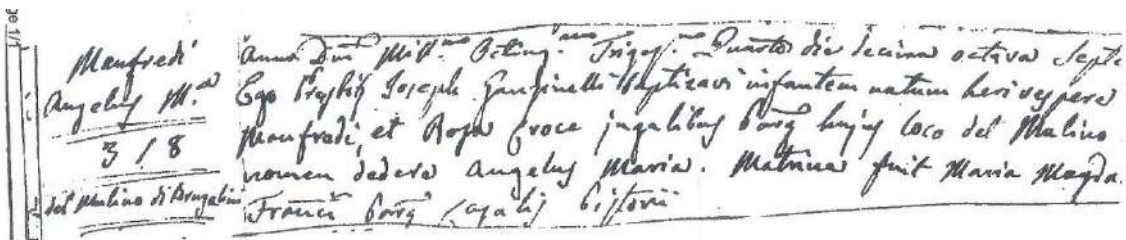 Manfredi
Angelus M.a
3 / 8
del Mulino di Brugalino
Anno Dni Mill.mo Octing.mo Triges.mo Quarto die decima octava Septe
Ego Joseph baptizavi infantem natum heri vespere
Manfredi, et Rosa Croce jugalibus hujus loco del Mulino
nomen dedere Angelus Maria. Matrina fuit Maria Magda.
Franci